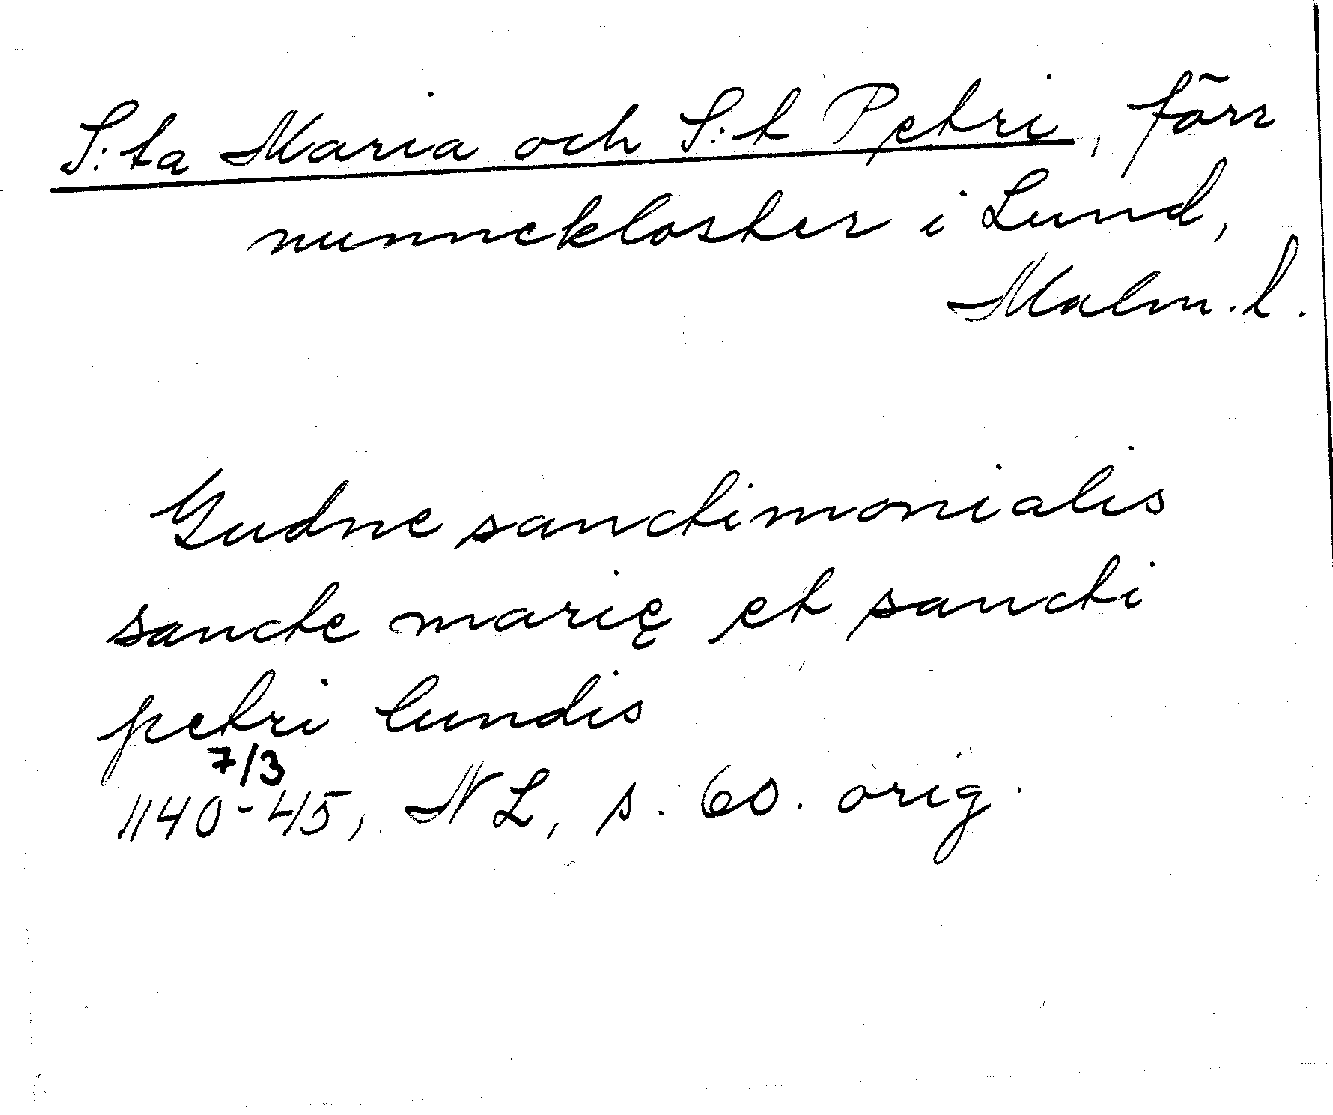 S:ta Maria och S:t Petri, förr
nunnekloster i Lund,
Malm.l.
Gudne sanctimonialis
sancte marię et sancti
petri lundis
7/3
1140-45, NL, s. 60. orig.